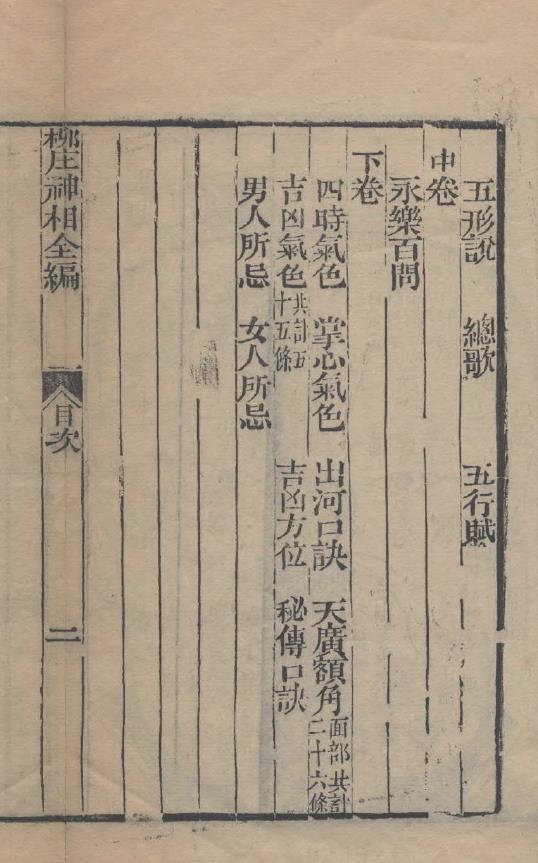 五形說　總歌　五行賦
中卷
永樂百問
下卷
四時氣色　掌心氣色　出河口訣　天廣額角面部共計二十六條
吉凶氣色共計五十五條　吉凶方位　秘傳口訣
男人所忌　女人所忌
柳庄神相全編　目次　二